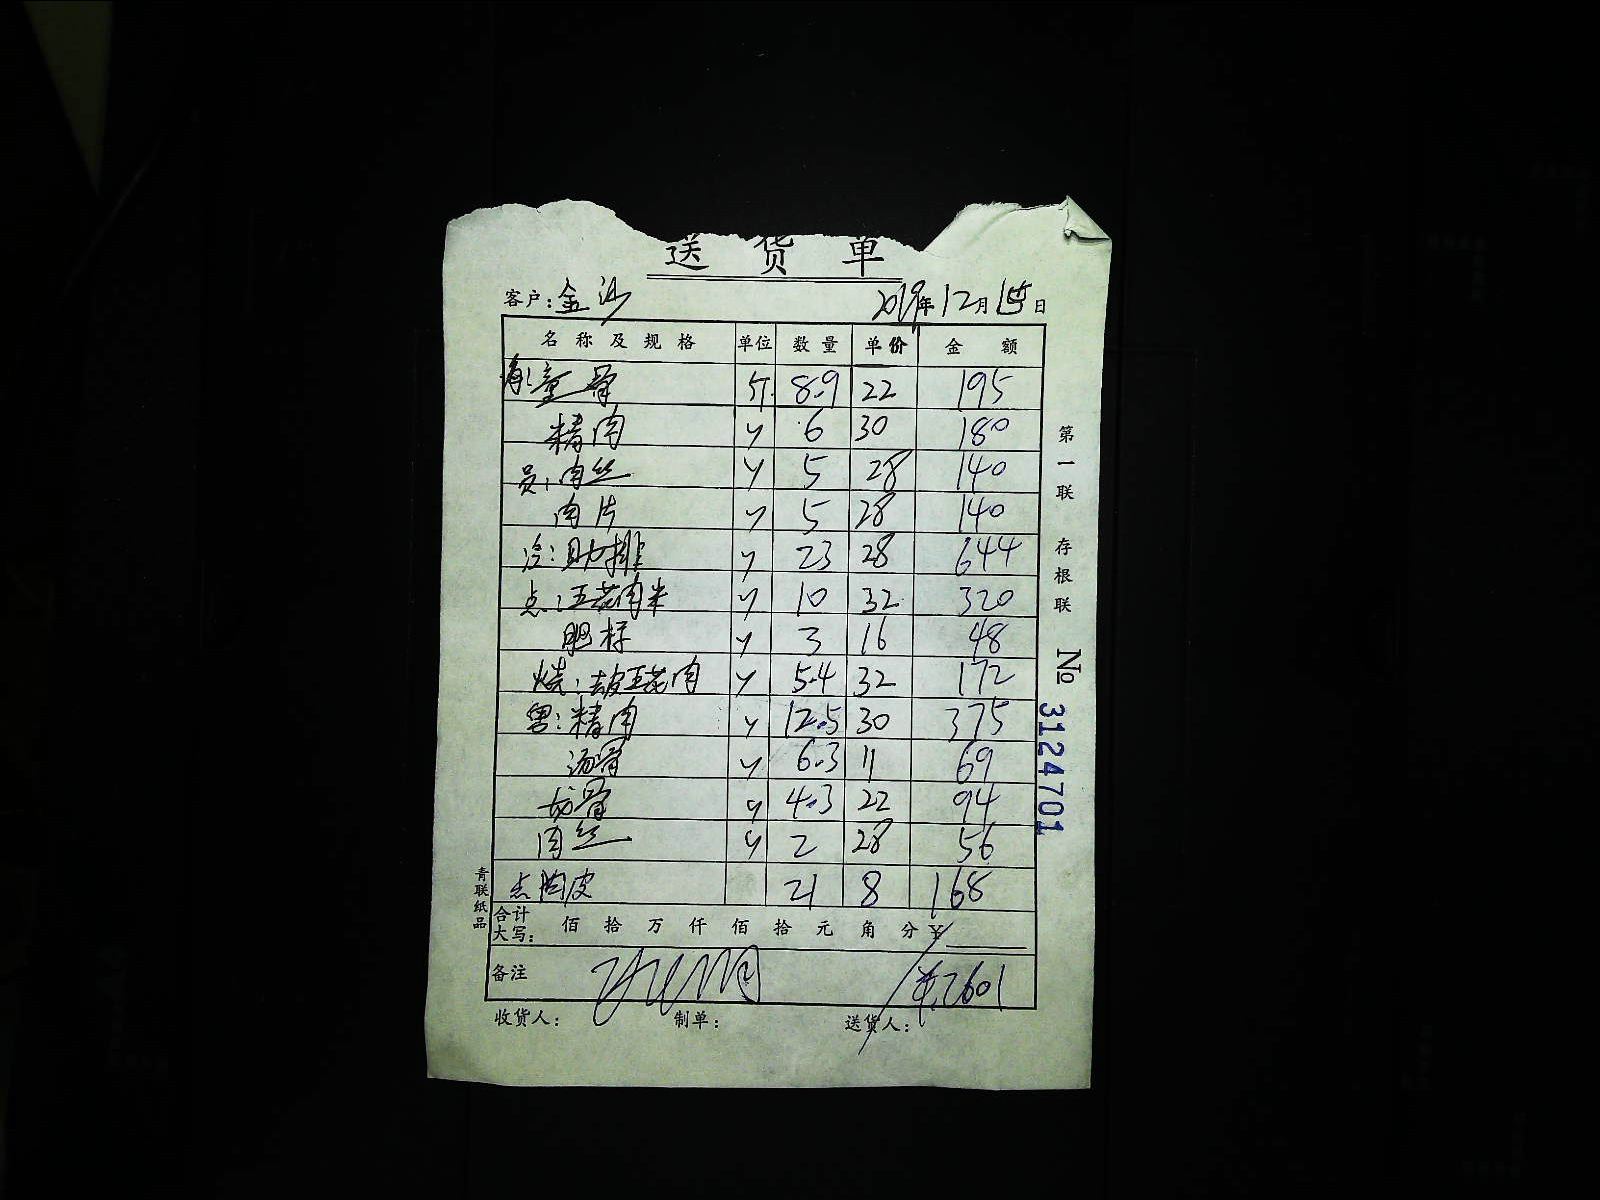 送货单
客户：金沙 2019年12月15日
名称及规格 单位 数量 单价 金额
童骨 斤 8.9 22 195
精肉 〃 6 30 180
员：肉丝 〃 5 28 140
肉片 〃 5 28 140
冷：助排 〃 23 28 644
点：五花肉米 〃 10 32 320
肥标 〃 3 16 48
烧：去皮五花肉 〃 5.4 32 172
精肉 〃 12.5 30 375
汤骨 〃 6.3 11 69
龙骨 〃 4.3 22 94
肉丝 〃 2 28 56
点 肉皮 21 8 168
合计大写： 佰 拾 万 仟 佰 拾 元 角 分 ¥
备注 ¥2601
收货人： 制单： 送货人：
第一联 存根联 № 3124701
青联纸品